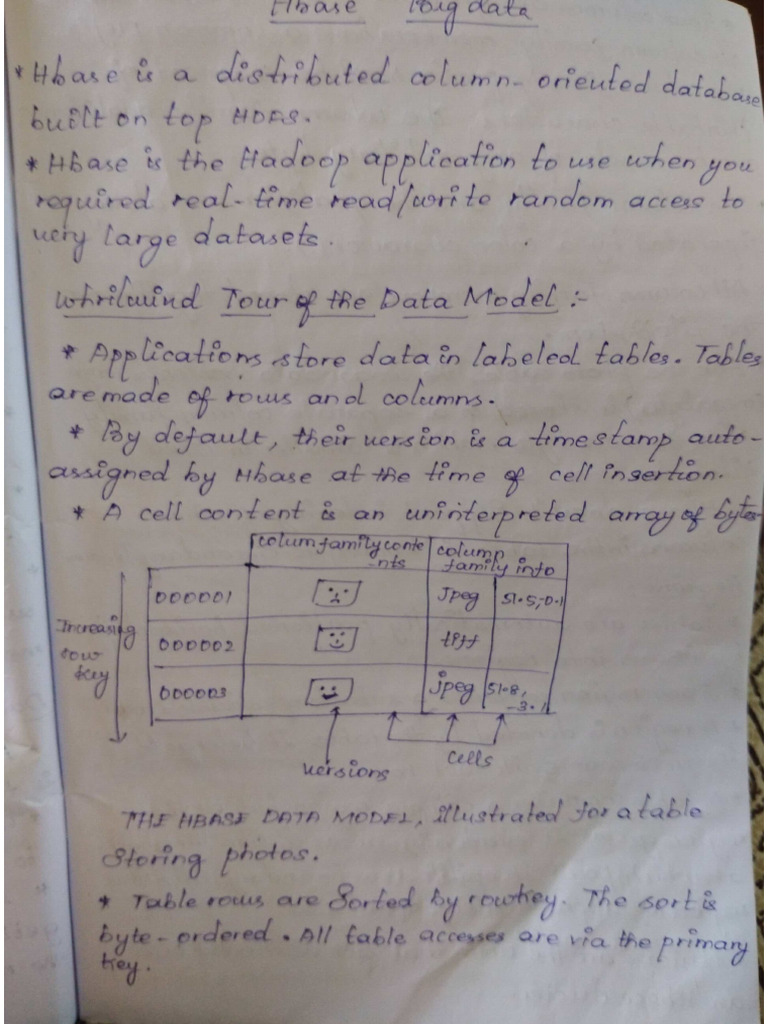 Hbase Big data
* Hbase is a distributed column-oriented database
built on top HDFS.
* Hbase is the Hadoop application to use when you
required real-time read/write random access to
very large datasets.
Whrilwind Tour of the Data Model :-
* Applications store data in labeled tables. Tables
are made of rows and columns.
* By default, their version is a timestamp auto-
assigned by Hbase at the time of cell insertion.
* A cell content is an uninterpreted array of bytes
colum family conte column
-nts family info
000001 Jpeg 51.5,-0.1
Increasing
000002 tiff
row
key
000003 jpeg 51.8,
-3.1
versions cells
THE HBASE DATA MODEL, illustrated for a table
Storing photos.
* Table rows are Sorted by rowkey. The sort is
byte-ordered. All table accesses are via the primary
key.